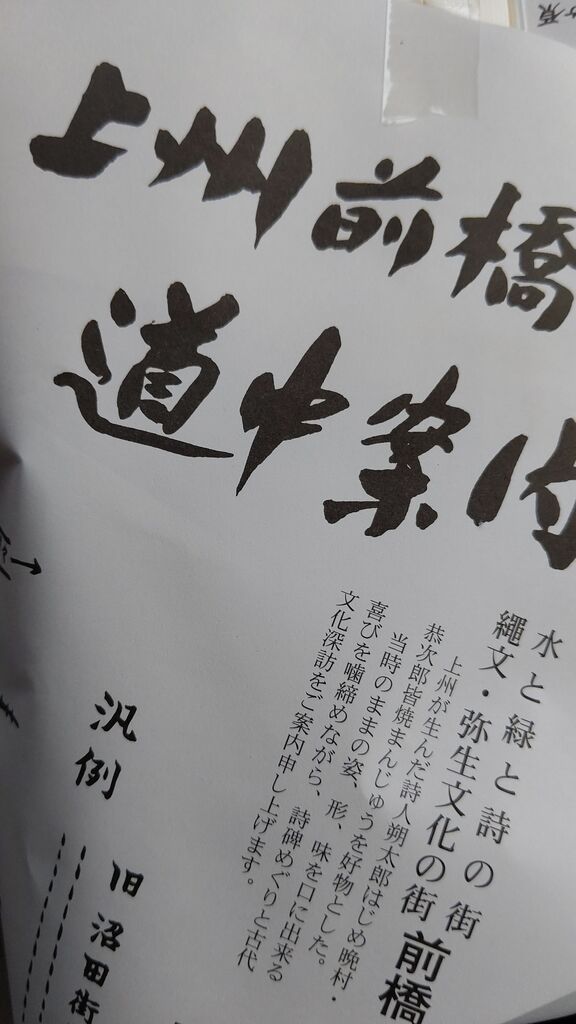 上州前橋
道中案内
水と緑と詩の街
縄文・弥生文化の街 前橋
上州が生んだ詩人朔太郎はじめ晩村・
恭次郎皆焼まんじゅうを好物とした。
当時のままの姿、形、味を口に出来る
喜びを噛締めながら、詩碑めぐりと古代
文化深訪をご案内申し上げます。
汎例
旧沼田街